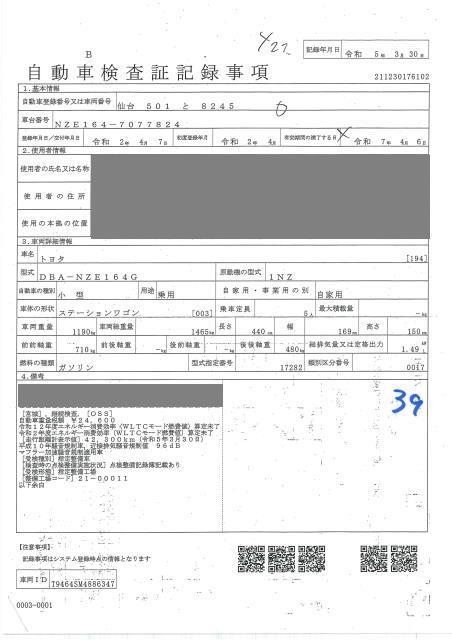 422
記録年月日 令和 5年 3月 30日
B
自動車検査証記録事項
211230176102
1.基本情報
自動車登録番号又は車両番号 仙台 501 と 8245
車台番号 NZE164-7077824
登録年月日/交付年月日 令和 2年 4月 7日 初度登録年月 令和 2年 4月 有効期間の満了する日 令和 7年 4月 6日
2.使用者情報
使用者の氏名又は名称
使用者の住所
使用の本拠の位置
3.車両詳細情報
車名 トヨタ [194]
型式 DBA-NZE164G 原動機の型式 1NZ
自動車の種別 小型 用途 乗用 自家用・事業用の別 自家用
車体の形状 ステーションワゴン [003] 乗車定員 5人 最大積載量 -kg
車両重量 1190kg 車両総重量 1465kg 長さ 440cm 幅 169cm 高さ 150cm
前前軸重 710kg 前後軸重 -kg 後前軸重 -kg 後後軸重 480kg 総排気量又は定格出力 1.49 kW L
燃料の種類 ガソリン 型式指定番号 17282 類別区分番号 0017
4.備考
39
[宮城], 継続検査, [OSS]
自動車重量税額 ¥24,600
令和12年度エネルギー消費効率(WLTCモード燃費値)算定未了
令和2年度エネルギー消費効率(WLTCモード燃費値)算定未了
[走行距離計表示値] 42,300km (令和5年3月30日)
平成10年騒音規制車, 近接排気騒音規制値 96dB
マフラー加速騒音規制適用車
[受検種別] 指定整備車
[検査時の点検整備実施状況] 点検整備記録簿記載あり
[受検形態] 指定整備工場
[整備工場コード] 21-00011
以下余白
[注意事項]
記録事項はシステム登録時点の情報となります
車両ID 79464SM4886347
0003-0001